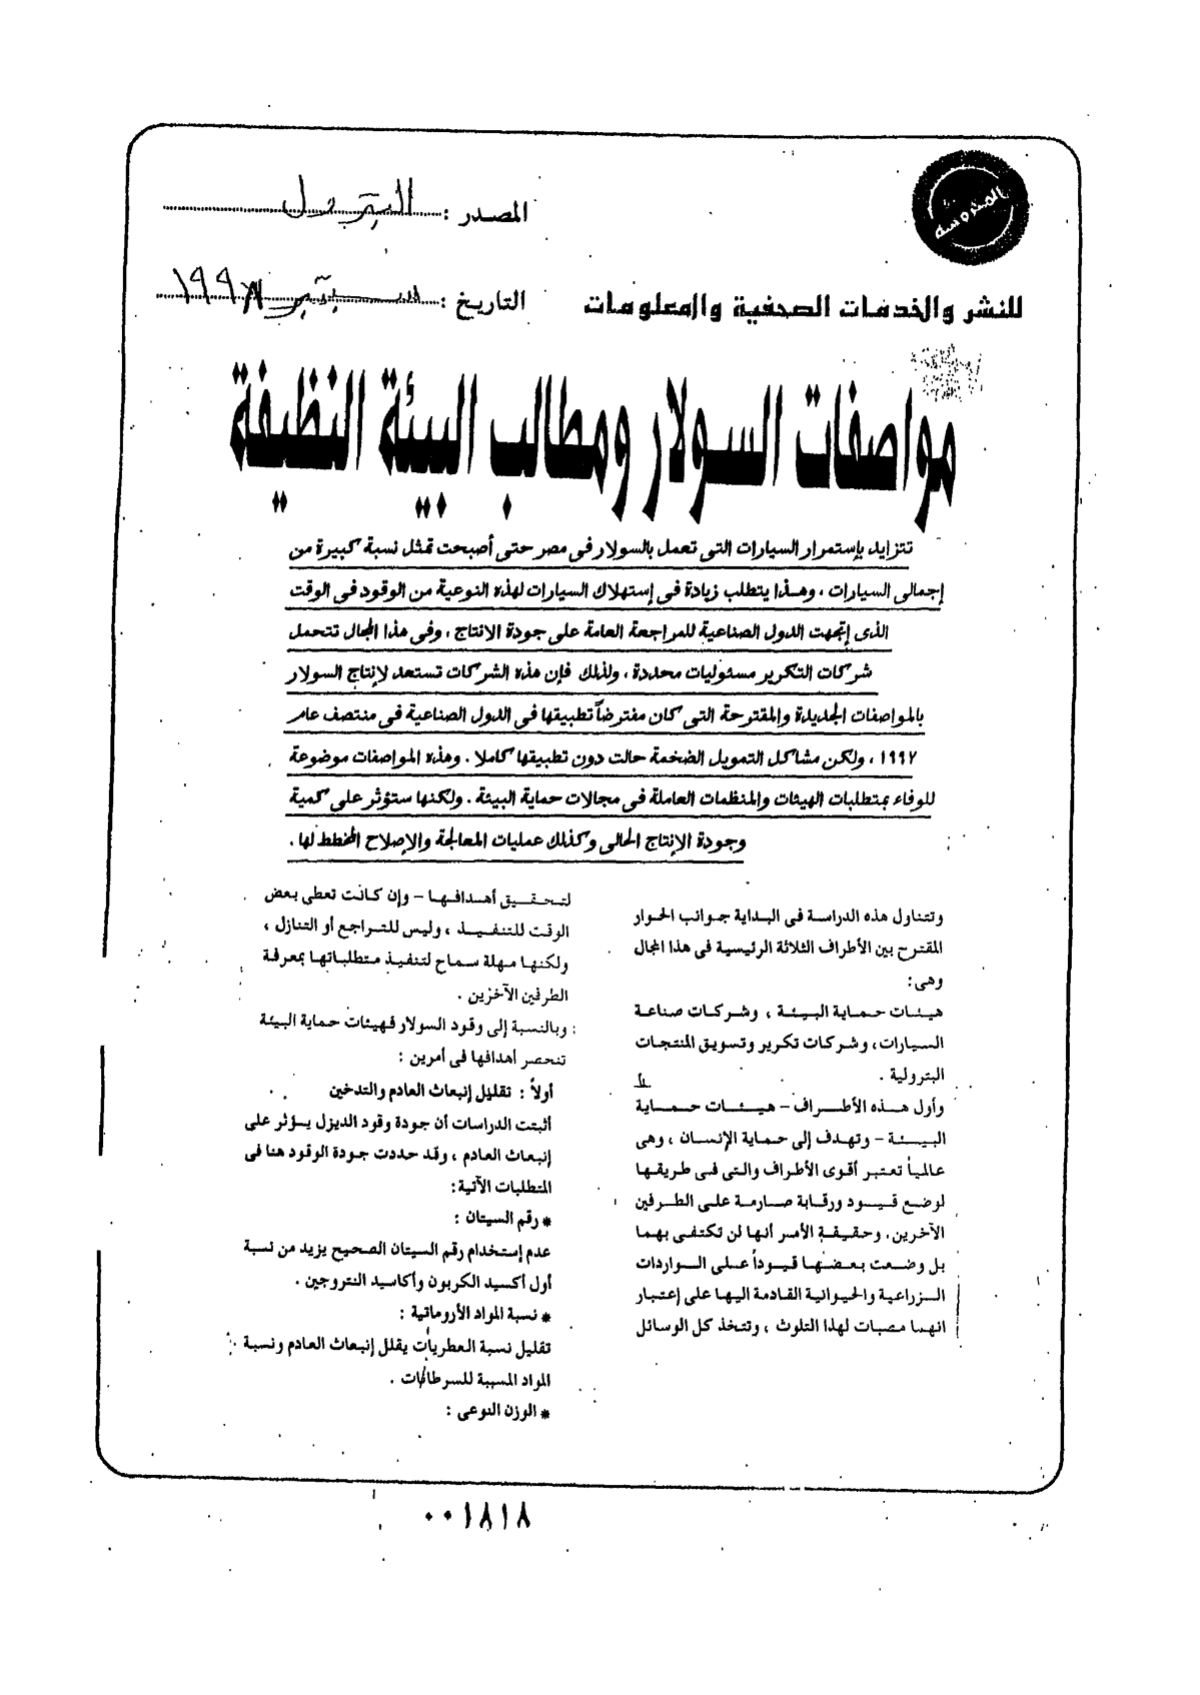 المحروسة
المصدر : البترول
للنشر والخدمات الصحفية والمعلومات
التاريخ : سبتمبر ١٩٩٨
مواصفات السولار ومطالب البيئة النظيفة
تتزايد بإستمرار السيارات التى تعمل بالسولار فى مصر حتى أصبحت تمثل نسبة كبيرة من
إجمالى السيارات ، وهذا يتطلب زيادة فى إستهلاك السيارات لهذه النوعية من الوقود فى الوقت
الذى إتجهت الدول الصناعية للمراجعة العامة على جودة الانتاج ، وفى هذا المجال تتحمل
شركات التكرير مسئوليات محددة ، ولذلك فإن هذه الشركات تستعد لإنتاج السولار
بالمواصفات الجديدة والمقترحة التى كان مفترضاً تطبيقها فى الدول الصناعية فى منتصف عام
١٩٩٧ ، ولكن مشاكل التمويل الضخمة حالت دون تطبيقها كاملا . وهذه المواصفات موضوعة
للوفاء بمتطلبات الهيئات والمنظمات العاملة فى مجالات حماية البيئة . ولكنها ستؤثر على كمية
وجودة الإنتاج الحالى وكذلك عمليات المعالجة والإصلاح المخطط لها .
وتتناول هذه الدراسة فى البداية جوانب الحوار
المقترح بين الأطراف الثلاثة الرئيسية فى هذا المجال
وهى :
هيئات حماية البيئة ، وشركات صناعة
السيارات ، وشركات تكرير وتسويق المنتجات
البترولية .
وأول هذه الأطراف - هيئات حماية
البيئة - وتهدف إلى حماية الإنسان ، وهى
عالمياً تعتبر أقوى الأطراف والتى فى طريقها
لوضع قيود ورقابة صارمة على الطرفين
الآخرين . وحقيقة الأمر أنها لن تكتفى بهما
بل وضعت بعضها قيوداً على الواردات
الزراعية والحيوانية القادمة اليها على إعتبار
انهما مصبات لهذا التلوث ، وتتخذ كل الوسائل
لتحقيق أهدافها - وإن كانت تعطى بعض
الوقت للتنفيذ ، وليس للتراجع أو التنازل ،
ولكنها مهلة سماح لتنفيذ متطلباتها بمعرفة
الطرفين الآخرين .
وبالنسبة إلى وقود السولار فهيئات حماية البيئة
تنحصر أهدافها فى أمرين :
أولاً : تقليل إنبعاث العادم والتدخين
أثبتت الدراسات أن جودة وقود الديزل يؤثر على
إنبعاث العادم ، وقد حددت جودة الوقود هنا فى
المتطلبات الآتية :
* رقم السيتان :
عدم إستخدام رقم السيتان الصحيح يزيد من نسبة
أول أكسيد الكربون وأكاسيد النتروجين .
* نسبة المواد الأروماتية :
تقليل نسبة العطريات يقلل إنبعاث العادم ونسبة
المواد المسببة للسرطانات .
* الوزن النوعى :
٠٠١٨١٨